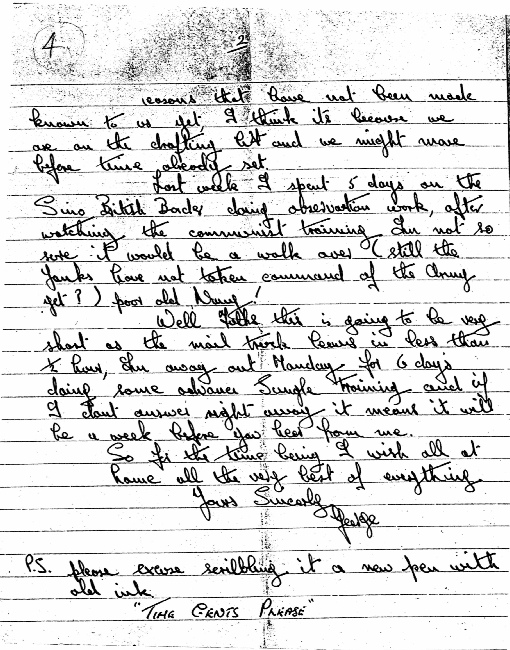 4
2
reasons that have not been made
known to us yet I think its because we
are on the drafting list and we might move
before time already set
Last week I spent 5 days on the
Sino British Border doing observation work, after
watching the communist training Im not so
sure it would be a walk over (still the
Yanks have not taken command of the Army
yet?) poor old Nung!
Well Folks this is going to be very
short as the mail truck leaves in less than
½ hour, Im away out Manday for 6 days
doing some advance Jungle Training and if
I dont answer right away it means it will
be a week before you hear from me.
So for the time being I wish all at
home all the very best of everything
Yours Sincerly
George
P.S. please excuse scribbling it a new pen with
old ink.
"TIME GENTS PLEASE"